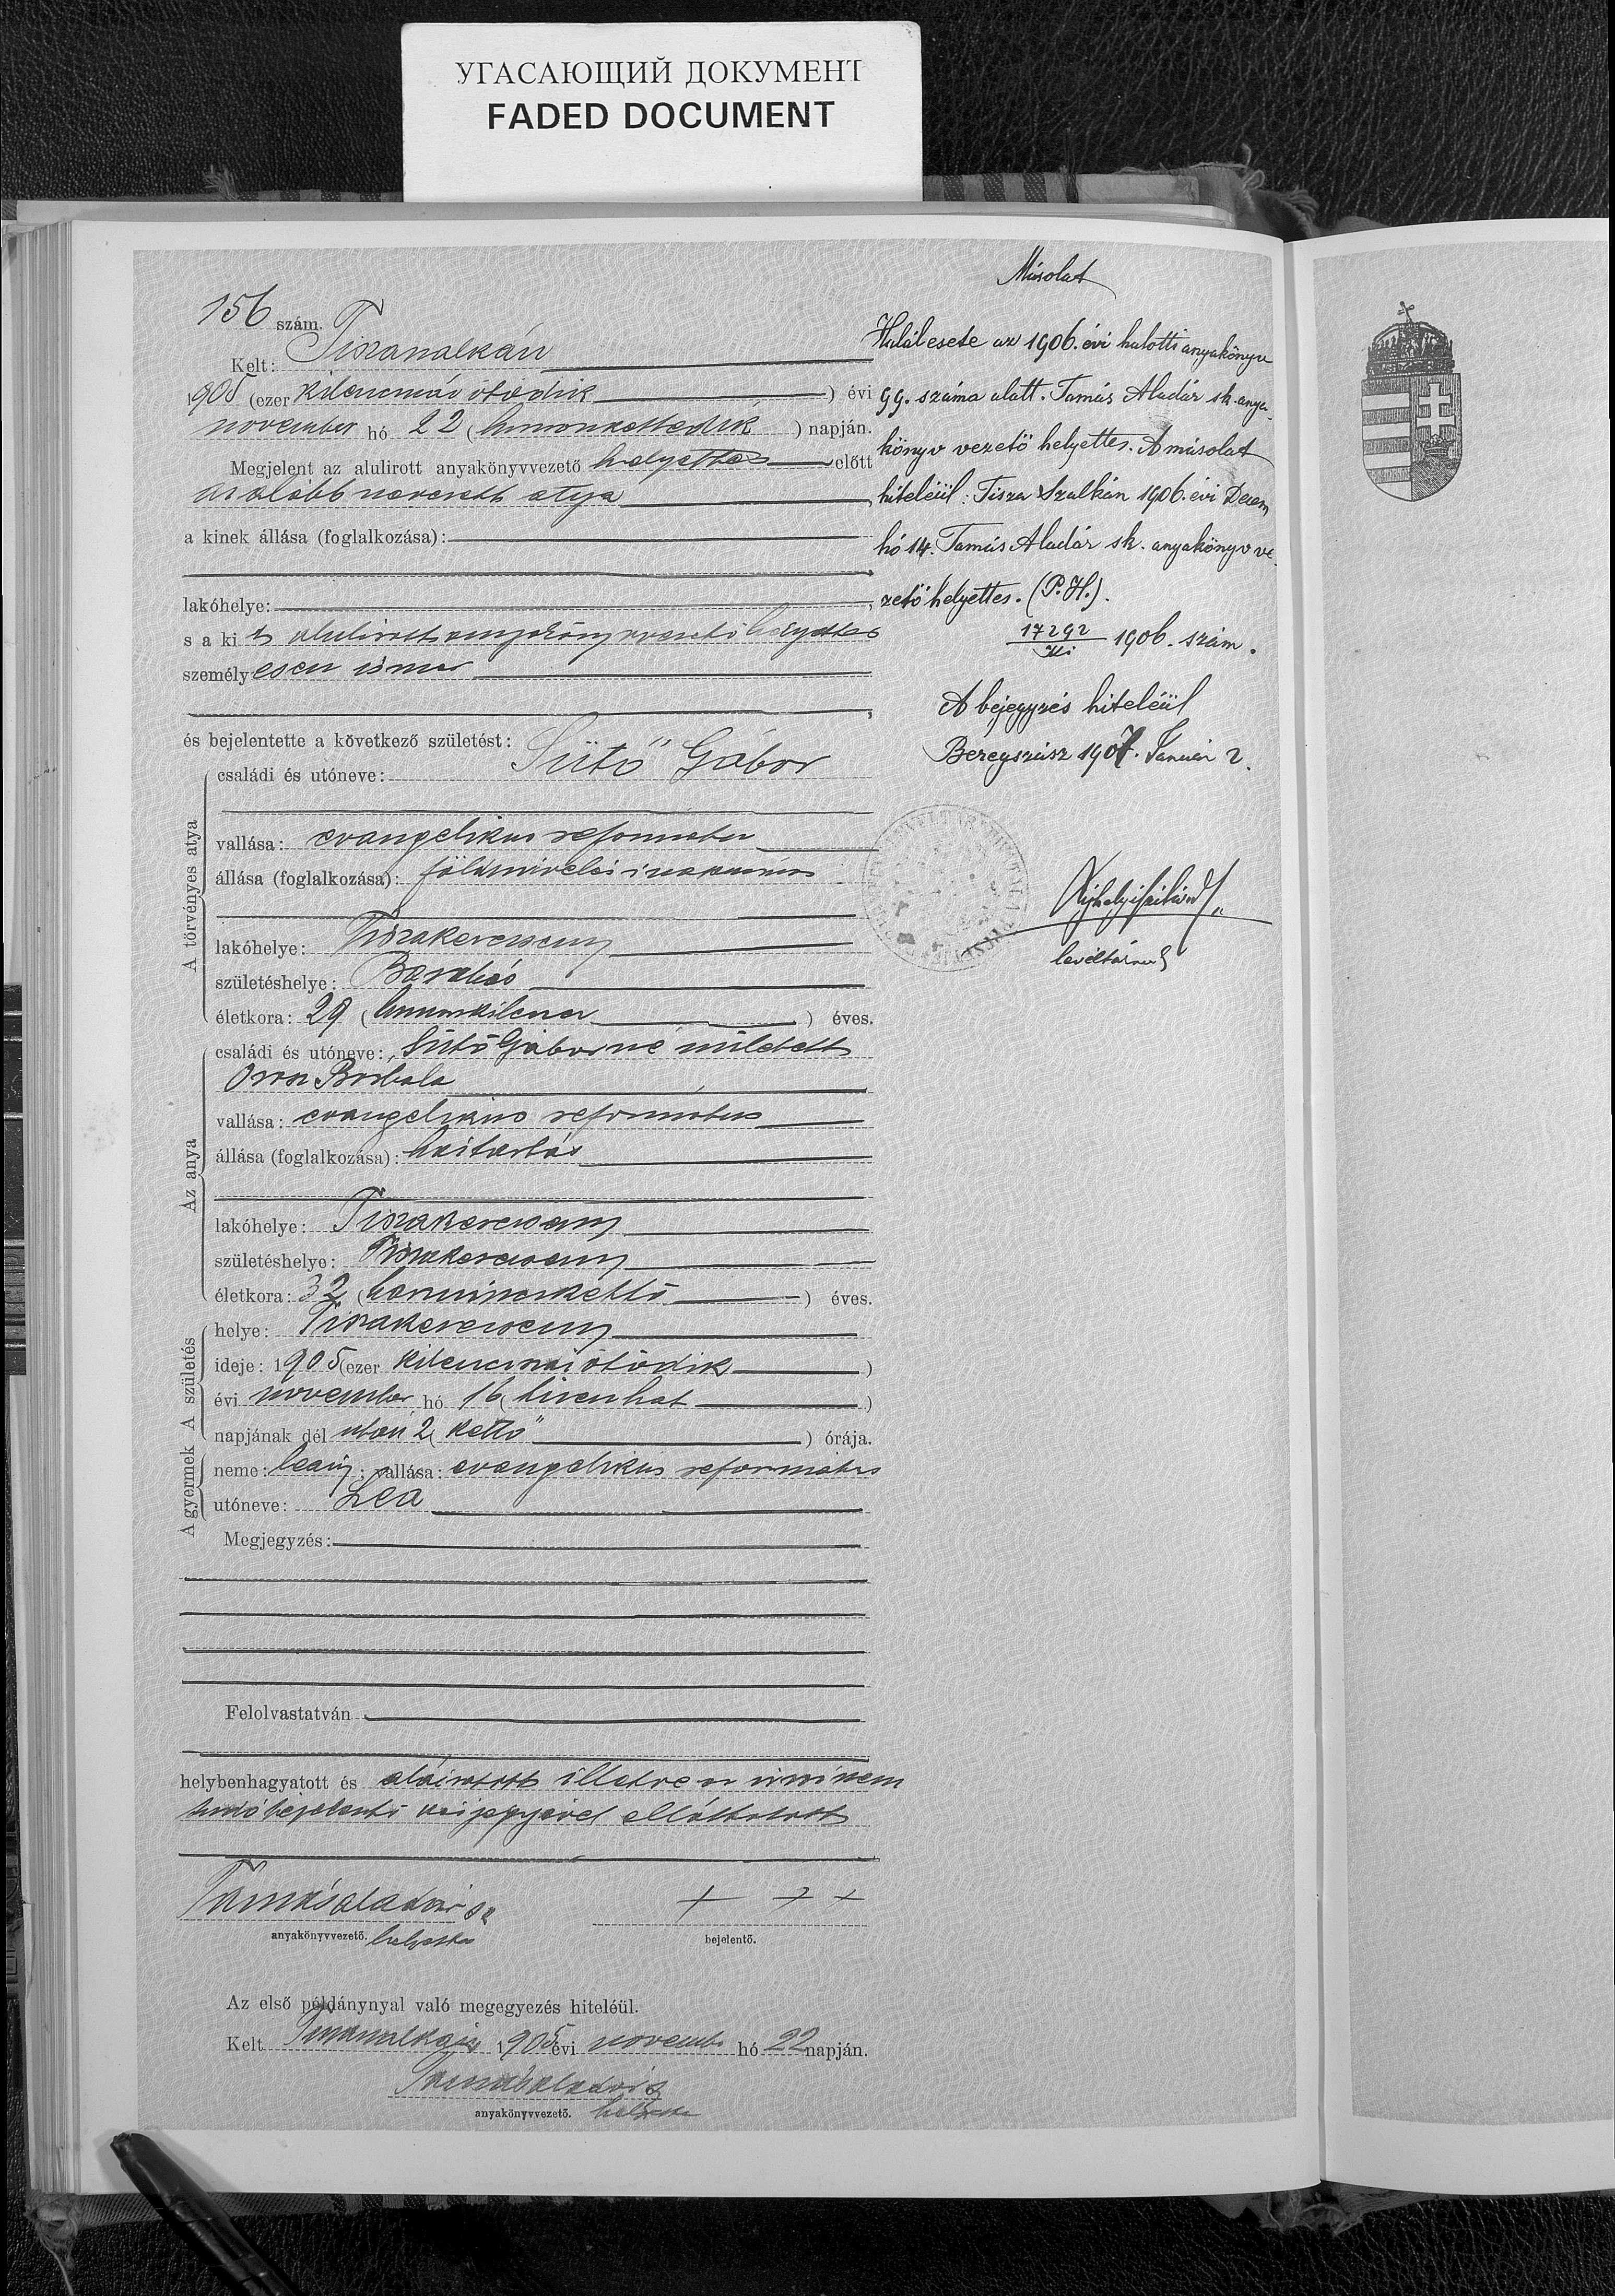 УГАСАЮЩИЙ ДОКУМЕНТ
FADED DOCUMENT
156 szám.
Kelt: Tiszaszalkán
1905 (ezer kilencszáz ötödik) évi
november hó 22 (huszonkettedik) napján.
Megjelent az alulirott anyakönyvvezető helyettes előtt
az alább nevezett atya,
a kinek állása (foglalkozása):
lakóhelye:
s a kit alulirott anyakönyvvezető helyettes
személyesen ismer
és bejelentette a következő születést:
A törvényes atya
családi és utóneve: Sütő Gábor
vallása: evangelikus református
állása (foglalkozása): földmivelési napszámos
lakóhelye: Tiszakerecseny
születéshelye: Barabás
életkora: 29 (huszonkilenc) éves.
Az anya
családi és utóneve: Sütő Gáborné született
Orosz Borbála
vallása: evangelikus református
állása (foglalkozása): háztartás
lakóhelye: Tiszakerecseny
születéshelye: Tiszakerecseny
életkora: 32 (harminczkettő) éves.
A születés
helye: Tiszakerecseny
ideje: 1905 (ezer kilencszáz ötödik)
évi november hó 16 (tizenhat)
napjának dél után 2 (kettő) órája.
A gyermek
neme: leány; vallása: evangelikus református
utóneve: Lea
Megjegyzés:
Felolvastatván
helybenhagyatott és aláiratott illetve az irni nem
tudó bejelentő kézjegyével elláttatott
Tamás Aladár sk + + +
anyakönyvvezető. helyettes bejelentő.
Az első példánynyal való megegyezés hiteléül.
Kelt Tiszaszalkán 1905 évi november hó 22 napján.
Tamás Aladár
anyakönyvvezető. helyettes
Másolat
Halálesete az 1906. évi halotti anyakönyv
99. száma alatt. Tamás Aladár sk. anya-
könyv vezető helyettes. A másolat
hiteléül: Tisza Szalkán 1906. évi Decem
hó 14. Tamás Aladár sk. anyakönyv ve-
zető helyettes. (P.H.).
17292 1906. szám.
A bejegyzés hiteléül
Beregszász 1907. Január 2.
levéltárnok